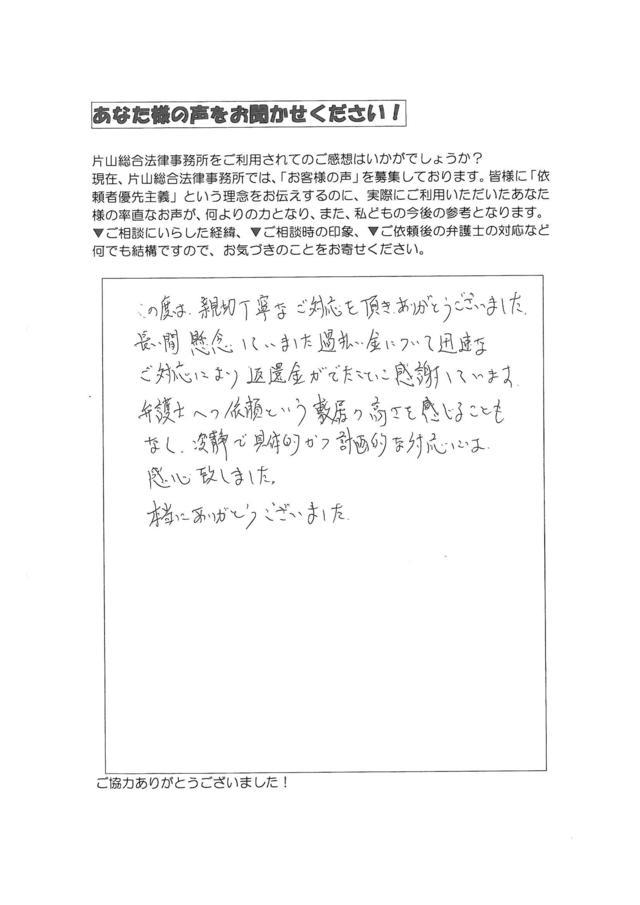 あなた様の声をお聞かせください！
片山総合法律事務所をご利用されてのご感想はいかがでしょうか？
現在、片山総合法律事務所では、「お客様の声」を募集しております。皆様に「依
頼者優先主義」という理念をお伝えするのに、実際にご利用いただいたあなた
様の率直なお声が、何よりの力となり、また、私どもの今後の参考となります。
▼ご相談にいらした経緯、▼ご相談時の印象、▼ご依頼後の弁護士の対応など
何でも結構ですので、お気づきのことをお寄せください。
この度は、親切丁寧なご対応を頂き、ありがとうございました。
長い間懸念していました過払い金について迅速な
ご対応により返還金がでたことに感謝しています。
弁護士への依頼という敷居の高さを感じることも
なく、冷静で具体的かつ計画的な対応には
感心致しました。
本当にありがとうございました。
ご協力ありがとうございました！